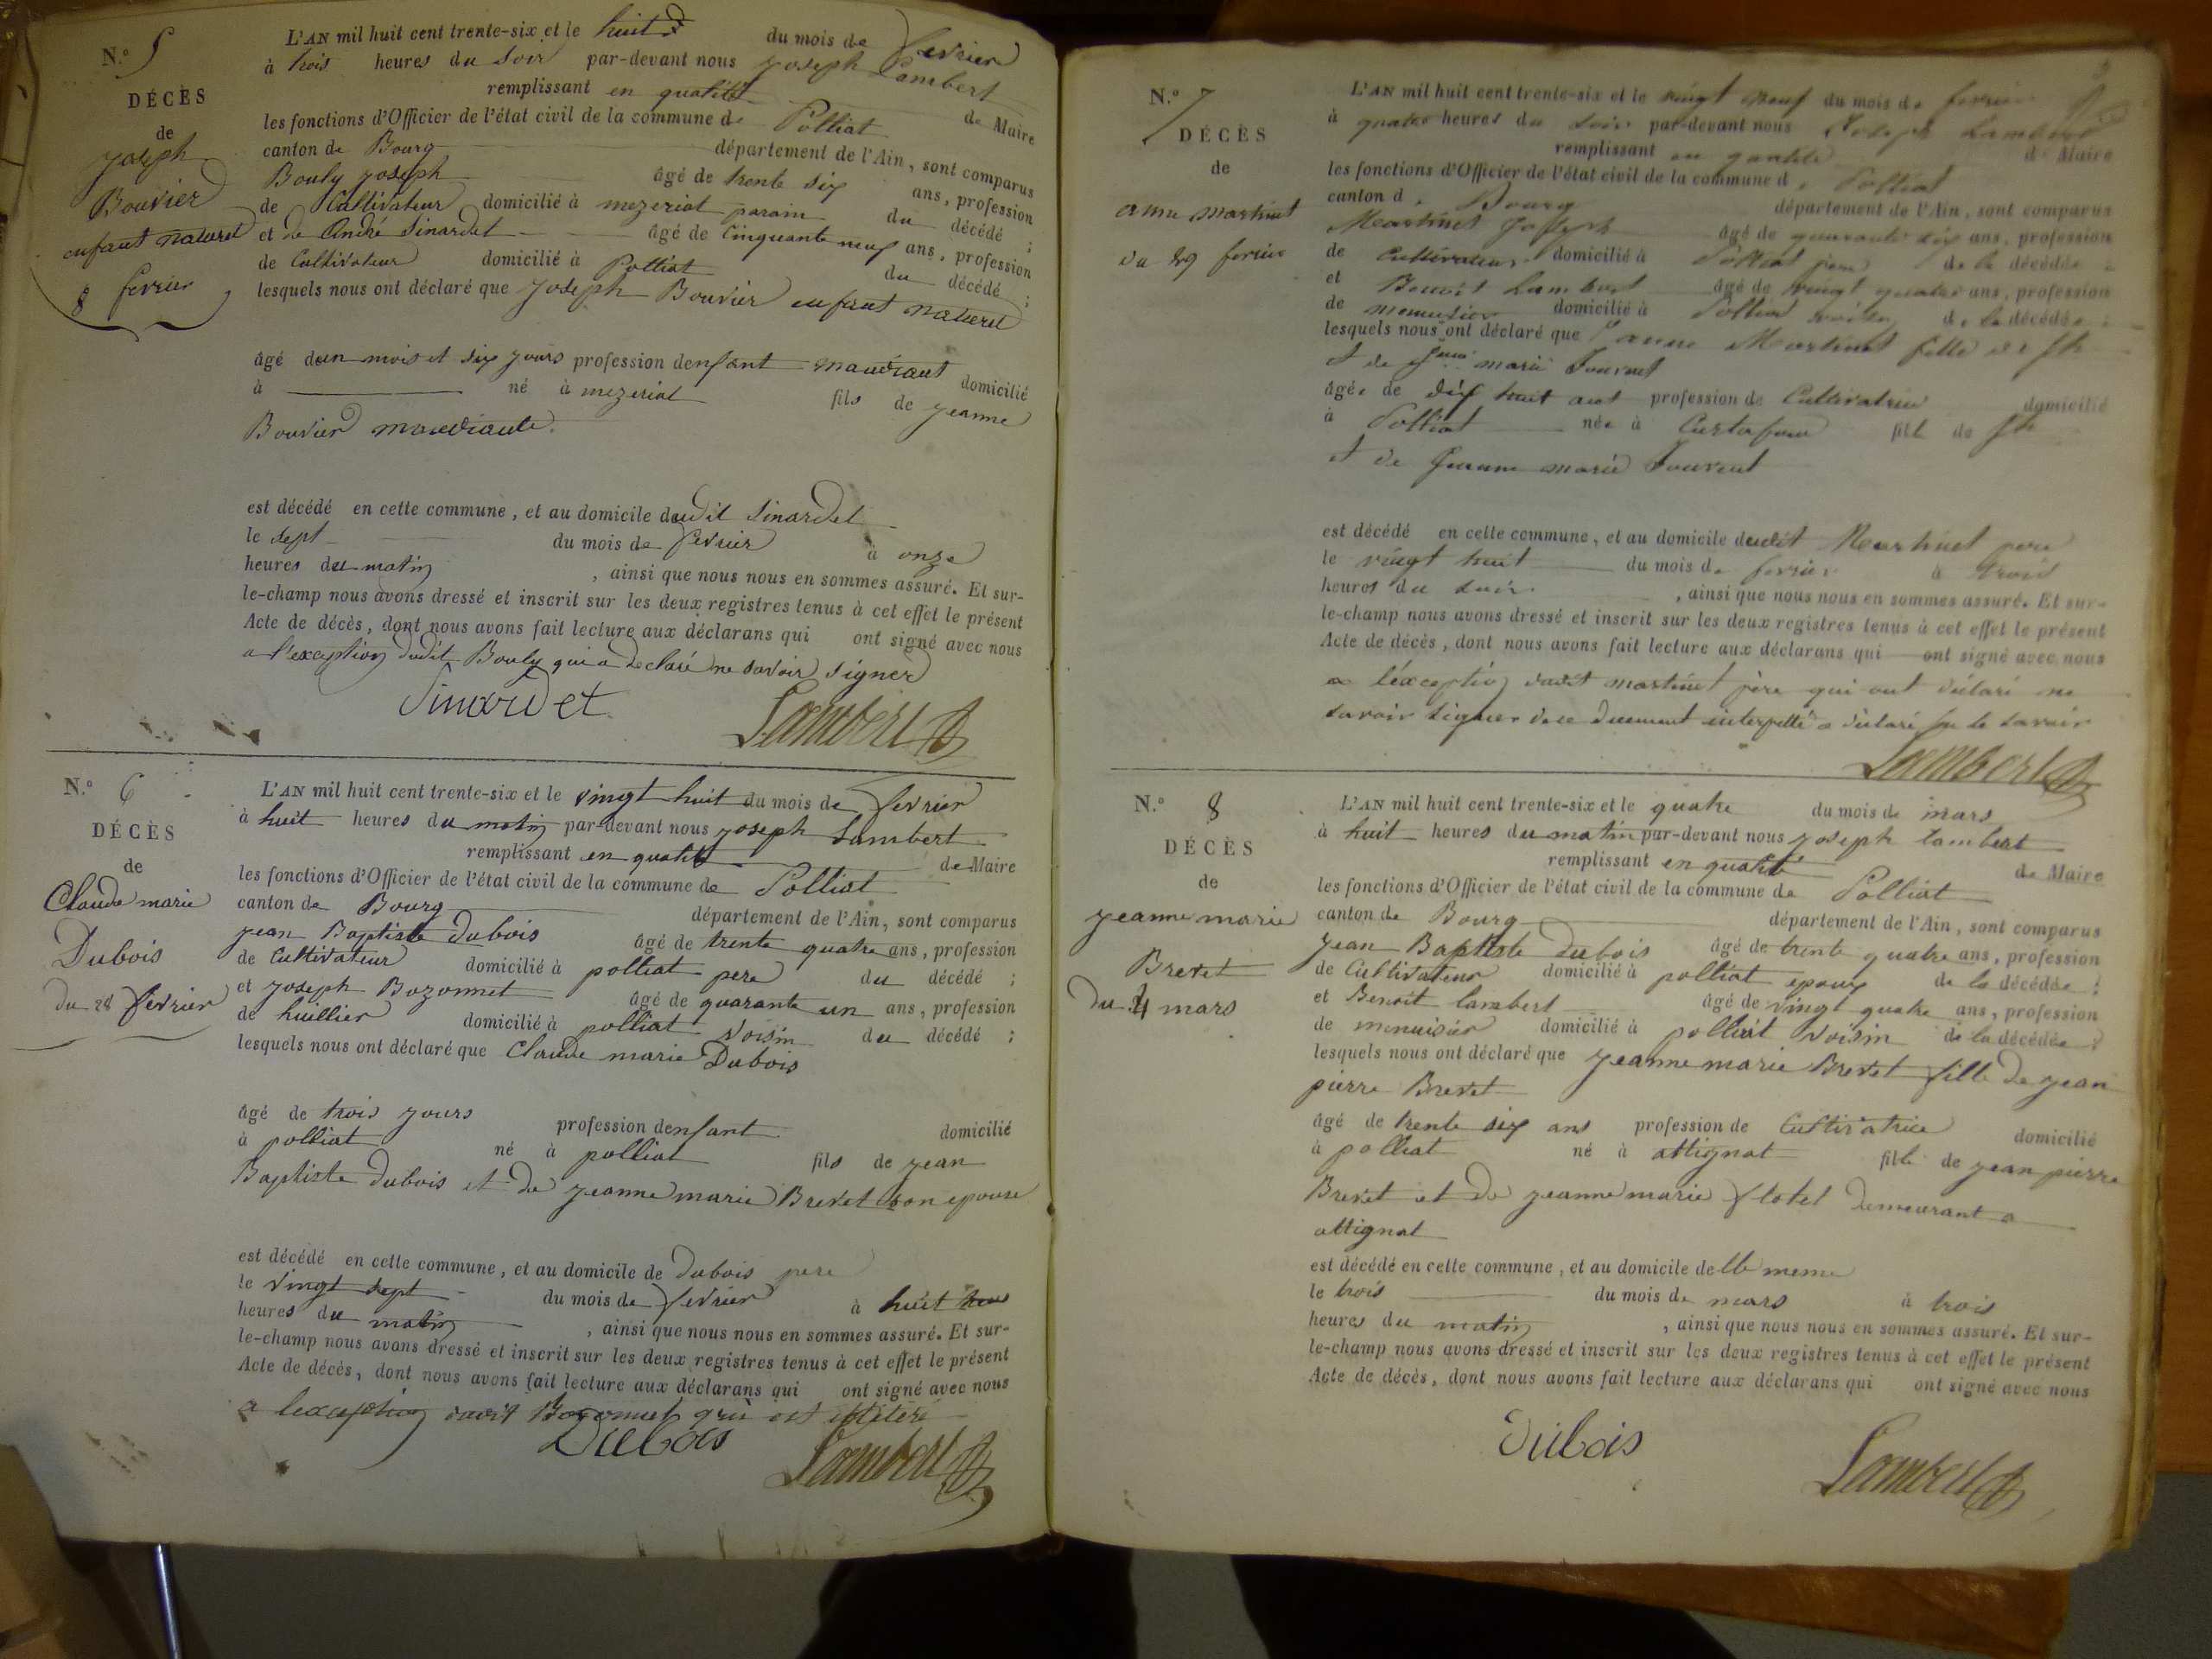 N.° 5
DÉCÈS
de
joseph
Bouvier
enfant naturel
8 fevrier
L'AN mil huit cent trente-six et le huit du mois de fevrier
à trois heures du soir par-devant nous joseph Lambert
remplissant en qualité de Maire
les fonctions d'Officier de l'état civil de la commune de Polliat
canton de Bourg département de l'Ain, sont comparus
Bouly joseph âgé de trente six ans, profession
de Cultivateur domicilié à mezeriat parain du décédé ;
et de André Sinardet âgé de Cinquante neuf ans, profession
de Cultivateur domicilié à Polliat du décédé ;
lesquels nous ont déclaré que joseph Bouvier enfant naturel
âgé d'un mois et six jours profession denfant mandiant domicilié
à né à mezeriat fils de jeanne
Bouvier mandiante.
est décédé en cette commune, et au domicile dudit Sinardet
le sept du mois de fevrier à onze
heures du matin, ainsi que nous nous en sommes assuré. Et sur-
le-champ nous avons dressé et inscrit sur les deux registres tenus à cet effet le présent
Acte de décès, dont nous avons fait lecture aux déclarans qui ont signé avec nous
a l'exception dudit Bouly qui a declaré ne savoir signer
Sinardet Lambert
N.° 6
DÉCÈS
de
Claude marie
Dubois
du 28 fevrier
L'AN mil huit cent trente-six et le vingt huit du mois de fevrier
à huit heures du matin par-devant nous joseph Lambert
remplissant en qualité de Maire
les fonctions d'Officier de l'état civil de la commune de Polliat
canton de Bourg département de l'Ain, sont comparus
jean Baptiste dubois âgé de trente quatre ans, profession
de Cultivateur domicilié à polliat pere du décédé ;
et joseph Bozonnet âgé de quarante un ans, profession
de huillier domicilié à polliat voisin du décédé ;
lesquels nous ont déclaré que Claude marie Dubois
âgé de trois jours profession denfant domicilié
à polliat né à polliat fils de jean
Baptiste dubois et de jeanne marie Brevet son epouse
est décédé en cette commune, et au domicile de dubois pere
le vingt sept du mois de fevrier à huit
heures du matin, ainsi que nous nous en sommes assuré. Et sur-
le-champ nous avons dressé et inscrit sur les deux registres tenus à cet effet le présent
Acte de décès, dont nous avons fait lecture aux déclarans qui ont signé avec nous
a lexception dudit Bozonnet qui est illiteré
Dubois Lambert
N.° 7
DÉCÈS
de
anne martinet
du 29 fevrier
L'AN mil huit cent trente-six et le vingt neuf du mois de fevrier
à quatre heures du soir par-devant nous Joseph Lambert
remplissant en qualité de Maire
les fonctions d'Officier de l'état civil de la commune de Polliat
canton de Bourg département de l'Ain, sont comparus
Martinet Joseph âgé de quarante six ans, profession
de Cultivateur domicilié à Polliat pere de la décédée
et Benoit Lambert âgé de vingt quatre ans, profession
de menuisier domicilié à Polliat voisin de la décédée ;
lesquels nous ont déclaré que anne Martinet fille de jh
et de jeanne marie Fouvent
âgée de dix huit ans profession de Cultivatrice domicilié
à Polliat née à Curtafond fille de jh
et de jeanne marie Fouvent
est décédé en cette commune, et au domicile dudit Martinet pere
le vingt huit du mois de fevrier à trois
heures du soir, ainsi que nous nous en sommes assuré. Et sur-
le-champ nous avons dressé et inscrit sur les deux registres tenus à cet effet le présent
Acte de décès, dont nous avons fait lecture aux déclarans qui ont signé avec nous
a léxception dudit martinet père qui ont déclaré ne
savoir signer de ce duement interpellé a déclaré ne le savoir
Lambert
N.° 8
DÉCÈS
de
jeanne marie
Brevet
du 4 mars
L'AN mil huit cent trente-six et le quatre du mois de mars
à huit heures du matin par-devant nous joseph lambert
remplissant en qualité de Maire
les fonctions d'Officier de l'état civil de la commune de Polliat
canton de Bourg département de l'Ain, sont comparus
jean Baptiste dubois âgé de trente quatre ans, profession
de Cultivateur domicilié à polliat epoux de la décédée ;
et Benoit lambert âgé de vingt quatre ans, profession
de menuisier domicilié à polliat voisin de la décédée ;
lesquels nous ont déclaré que jeanne marie Brevet fille de jean
pierre Brevet
âgé de trente six ans profession de Cultivatrice domicilié
à polliat né à attignat fille de jean pierre
Brevet et de jeanne marie flotel demeurant a
attignat
est décédé en cette commune, et au domicile delle meme
le trois du mois de mars à trois
heures du matin, ainsi que nous nous en sommes assuré. Et sur-
le-champ nous avons dressé et inscrit sur les deux registres tenus à cet effet le présent
Acte de décès, dont nous avons fait lecture aux déclarans qui ont signé avec nous
Dubois Lambert